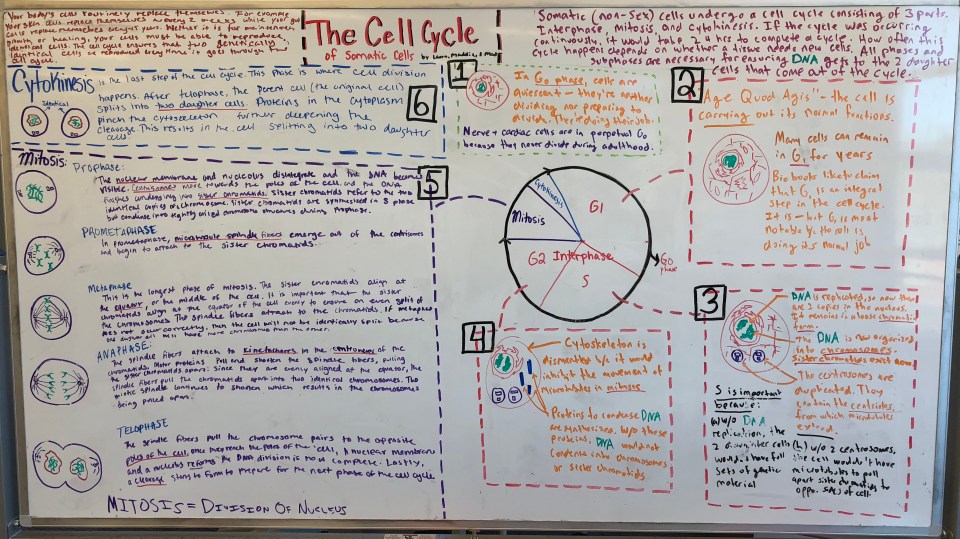 Your body's cells routinely replace themselves. For example
your skin cells replace themselves
cells replace themselves
growth or healing, your cells must be able to reproduce
identical cells. The cell cycle ensures that two genetically
identical cells are reproduced every time it goes through
The Cell Cycle
of Somatic Cells
Somatic (non-sex) cells undergo a cell cycle consisting of 3 parts.
Interphase, Mitosis, and Cytokinesis. If the cycle was occurring
continously, it would take 24 hrs to complete a cycle. How often this
cycle happens depends on whether a tissue needs new cells. All phases and
subphases are necessary for ensuring DNA gets to the 2 daughter
cells that come out of the cycle.
Cytokinesis
is the last step of the cell cycle. This phase is where cell division
happens. After telophase, the parent cell (the original cell)
splits into two daughter cells. Proteins in the cytoplasm
pinch the cytoskeleton further deepening the
cleavage. This results in the cell splitting into two daughter
cells.
6
identical
1
In Go phase, cells are
quiescent - they're neither
dividing nor preparing to
divide. They're doing their job.
Nerve + cardiac cells are in perpetual Go
because they never divide during adulthood.
2
"Age Quod Agis" - the cell is
carrying out its normal functions.
Many cells can remain
in G1 for years
Bio books like to claim
that G1 is an integral
step in the cell cycle.
It is - but G1 is most
notable b/c the cell is
doing its normal job
Mitosis:
5
Prophase:
The nuclear membrane and nucleolus disintegrate and the DNA becomes
visible. Centrosomes move towards the poles of the cell and the DNA
finishes condensing into sister chromatids. Sister chromatids refer to the two
identical copies of a chromosome. Sister chromatids are synthesized in S phase
but condense into tightly coiled chromosome structures during prophase.
PROMETAPHASE
In prometaphase, microtubule spindle fibers emerge out of the centrosomes
and begin to attach to the sister chromatids.
Metaphase
This is the longest phase of mitosis. The sister chromatids align at
the equator, or the middle of the cell. It is important that the sister
chromatids align at the equator of the cell evenly to ensure an even split of
the chromosomes. The spindle fibers attach to the chromatids. If metaphase
does not occur correctly, then the cell will not be identically split because
one sister cell will have more chromosomes than the other.
ANAPHASE:
The spindle fibers attach to kinetochores in the centromeres of the
chromatids. Motor proteins pull and shorten the spindle fibers, pulling
the sister chromatids apart. Since they are evenly aligned at the equator, the
spindle fibers pull the chromatids apart into two identical chromosomes. The
mitotic spindle continues to shorten which results in the chromosomes
being pulled apart.
TELOPHASE
The spindle fibers pull the chromosome pairs to the opposite
poles of the cell, once they reach the poles of the cell, A nuclear membrane
and a nucleolus reforms the DNA division is now complete. Lastly,
a cleavage starts to form to prepare for the next phase of the cell cycle
MITOSIS = DIVISION OF NUCLEUS
Cytokinesis
Mitosis
G1
G2
Interphase
S
Go
phase
4
Cytoskeleton is
dismantled b/c it would
inhibit the movement of
microtubules in mitosis
Proteins to condense DNA
are synthesized. W/o these
proteins, DNA would not
condense into chromosomes
or sister chromatids
3
DNA is replicated, so now there
are 2 copies in the nucleus.
It remains in a loose chromatin
form.
The DNA is now organized
into chromosomes.
Sister chromatids exist now
The centrosomes are
duplicated. They
contain the centrioles,
from which microtubules
extend.
S is important
because:
w/o DNA
replication, the
2 daughter cells
wouldn't have full
sets of genetic
material
(b) w/o 2 centrosomes,
the cell wouldn't have
microtubules to pull
apart sister chromatids to
oppo. sides of cell.